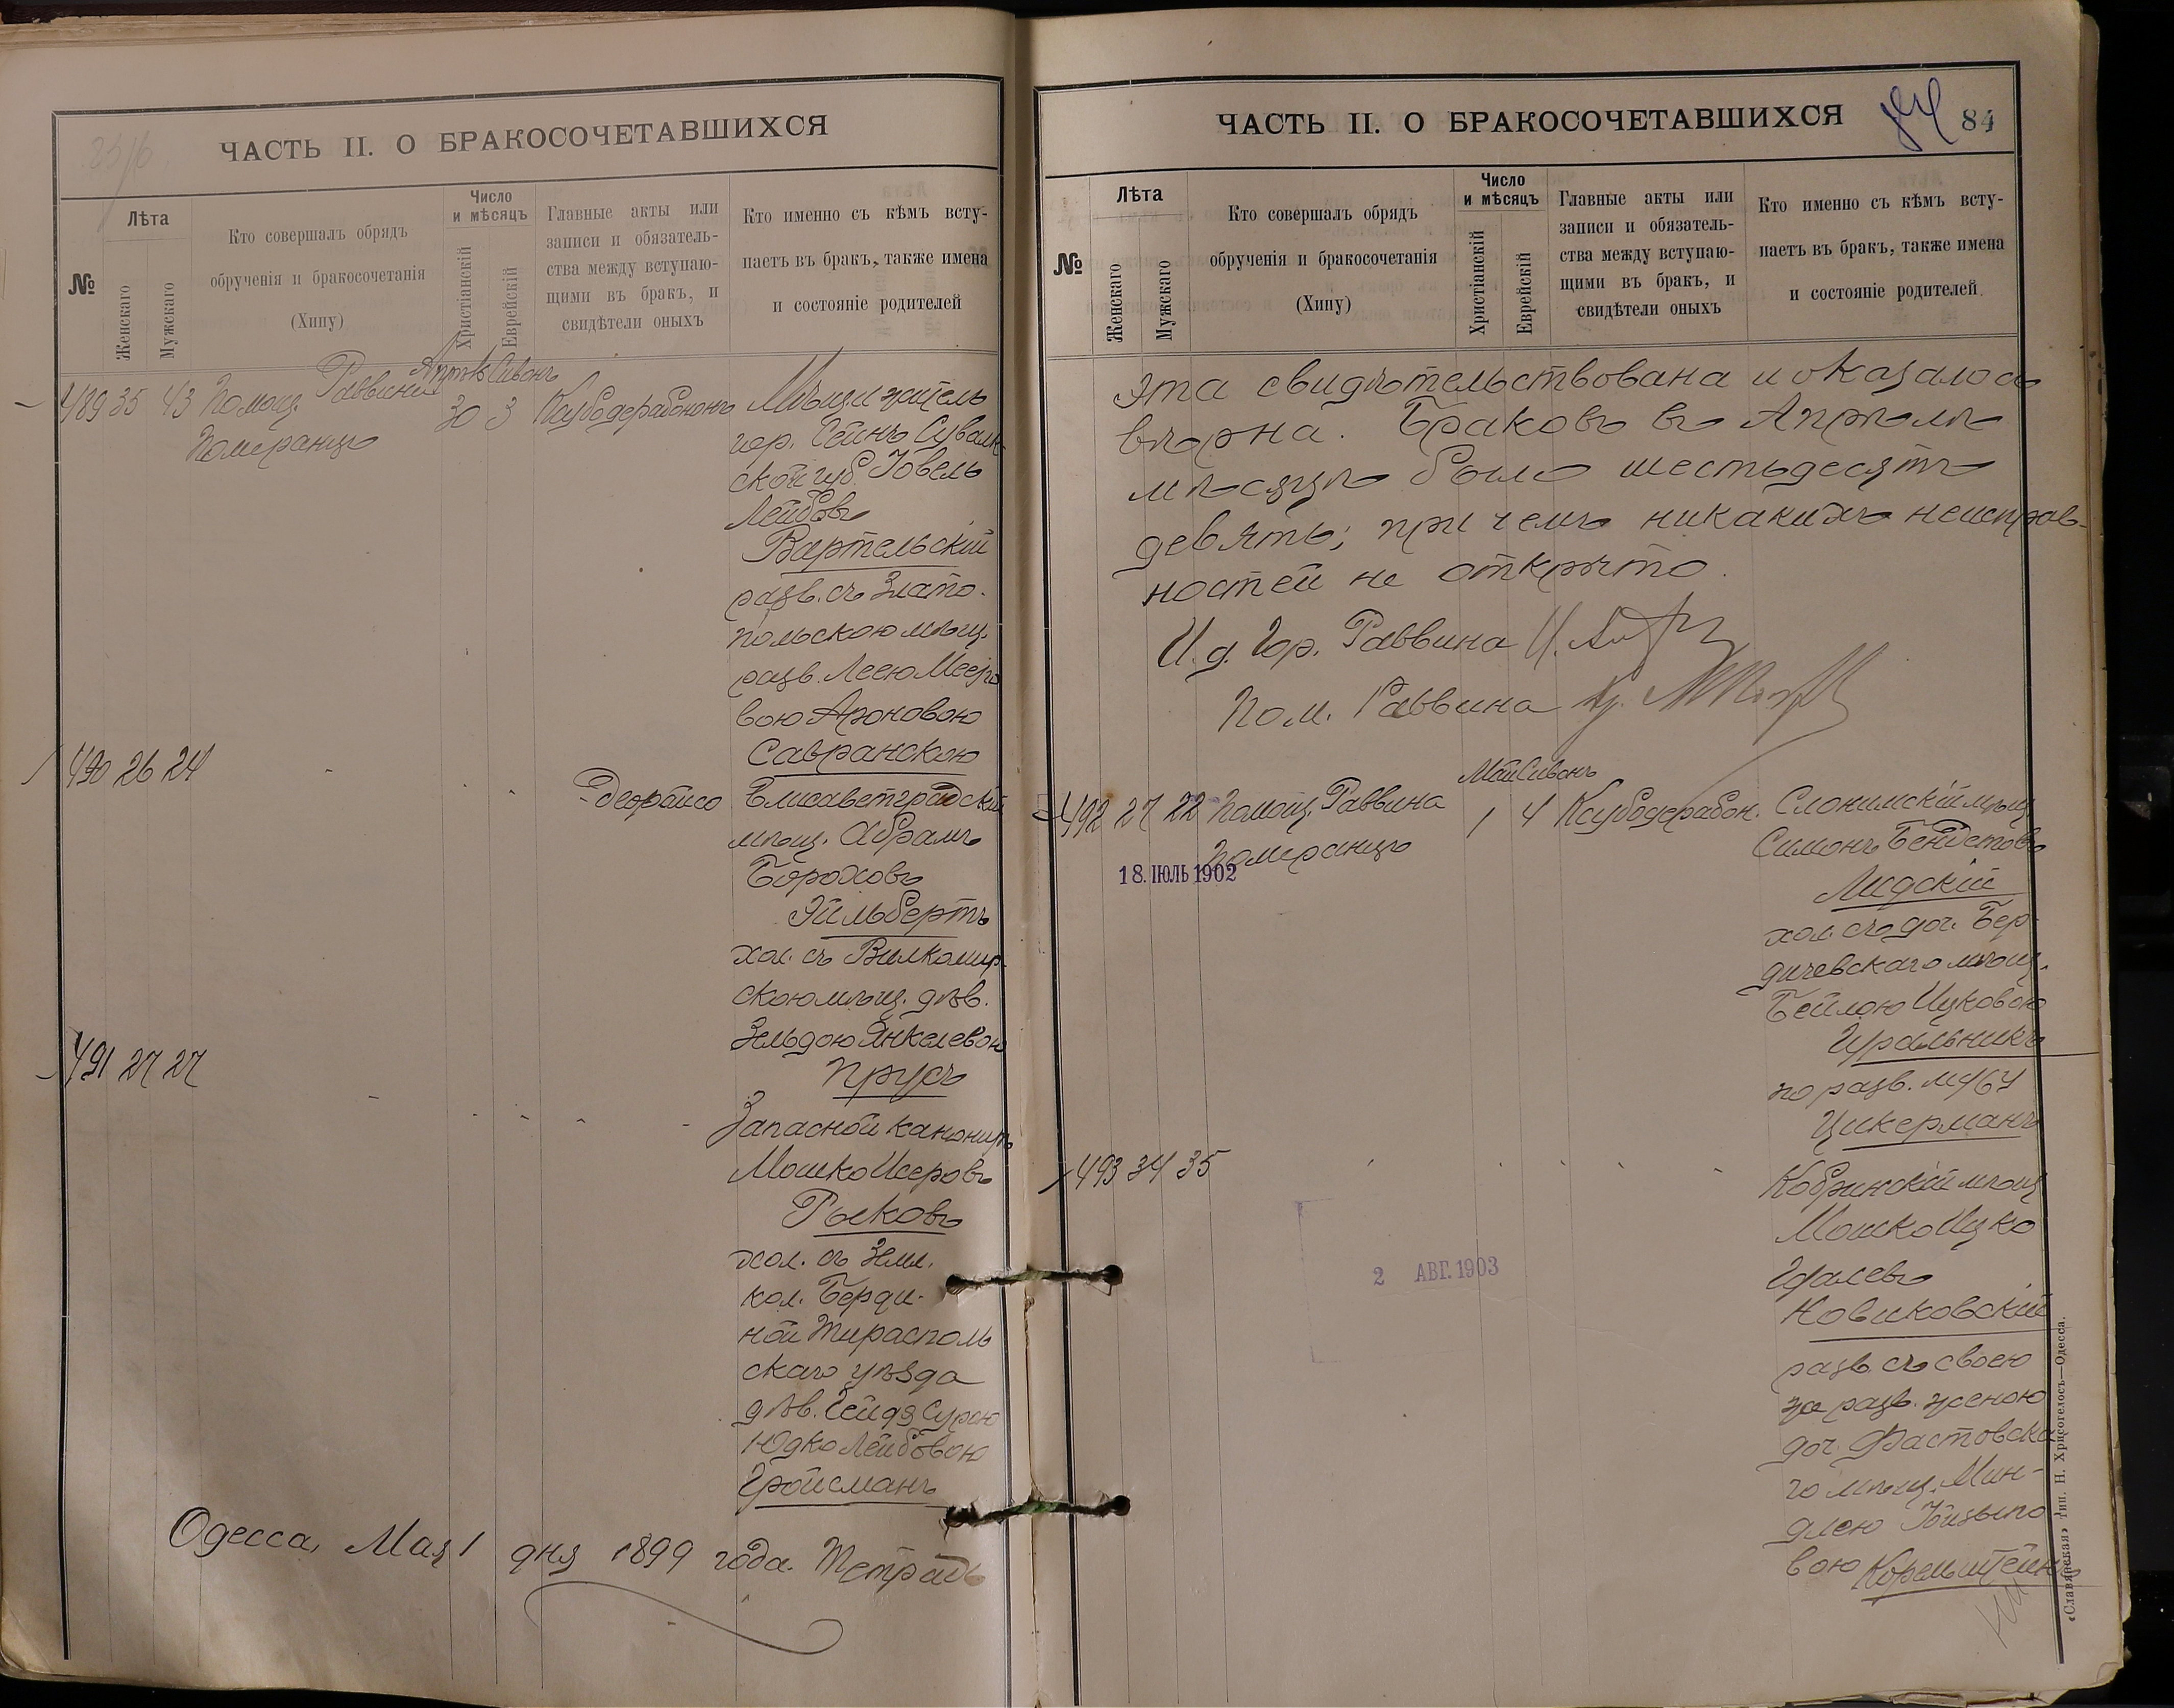 ЧАСТЬ II. О БРАКОСОЧЕТАВШИХСЯ
№
Лѣта
Женскаго
Мужскаго
Кто совершалъ обрядъ
обрученія и бракосочетанія
(Хипу)
Число
и мѣсяцъ
Христіанскій
Еврейскій
Главные акты или
записи и обязатель-
ства между вступаю-
щими въ бракъ, и
свидѣтели оныхъ
Кто именно съ кѣмъ всту-
паетъ въ бракъ, также имена
и состояніе родителей
489 35 43 Помощ. Раввина
Померанцъ
Апрѣль Сивонъ
30 3
Мѣщ. и житель
гор. Сейнъ Сувалк-
ской губ. Іовель
Лейбовъ
Вартельскій
разв. съ Злато-
польскою мѣщ.
разв. Леею Мееро
вою Ароновою
Савранскою
490 26 24
Елисаветградскій
мѣщ. Абрамъ
Бороховъ
Эйльбертъ
хол. съ Вилкомир-
скою мѣщ. дѣв.
Зельдою Янкелевою
Прусъ
491 27 27
Запасной канониръ
Мошко Исеровъ
Рыковъ
хол. съ Земл.
кол. Берди-
ной Тирасполь
скаго уѣзда
дѣв. Сурою
Юдко Лейбовою
Гройсманъ
Одесса, Мая 1 дня 1899 года. Тетрадь
ЧАСТЬ II. О БРАКОСОЧЕТАВШИХСЯ
84
84
№
Лѣта
Женскаго
Мужскаго
Кто совершалъ обрядъ
обрученія и бракосочетанія
(Хипу)
Число
и мѣсяцъ
Христіанскій
Еврейскій
Главные акты или
записи и обязатель-
ства между вступаю-
щими въ бракъ, и
свидѣтели оныхъ
Кто именно съ кѣмъ всту-
паетъ въ бракъ, также имена
и состояніе родителей
эта свидѣтельствована и оказалась
вѣрна. Браковъ въ Апрѣлѣ
мѣсяцѣ было шестьдесятъ
девять; при чемъ никакихъ неисправ-
ностей не открыто.
И. д. Гор. Раввина
Пом. Раввина
492 27 22 Помощ. Раввина
Померанцъ
Май Сивонъ
1 4
18. ІЮЛЬ 1902
Слонимскій мѣщ.
Симонъ Бендетовъ
Лидскій
хол. съ доч. Бер-
дичевскаго мѣщ.
Бейлою Ицковою
Цирольникъ
по разв. № 464
Цикерманъ
493 34 35
Кобринскій мѣщ
Мошко Ицко
Новиковскій
разв. съ своею
же разв. женою
доч. Фастовска
го мѣщ. Мин-
длею
вою Корельштейнъ
2 АВГ. 1903
«Славянская» тип. Н. Хрисогелосъ—Одесса.